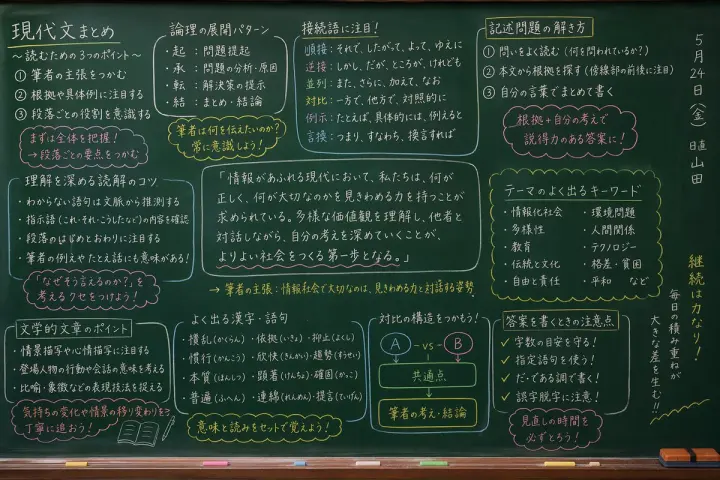 現代文まとめ
～読むための3つのポイント～
① 筆者の主張をつかむ
② 根拠や具体例に注目する
③ 段落ごとの役割を意識する
まずは全体を把握！
→段落ごとの要点をつかむ
論理の展開パターン
・起：問題提起
・承：問題の分析・原因
・転：解決策の提示
・結：まとめ・結論
筆者は何を伝えたいのか？
常に意識しよう！
接続語に注目！
順接：それで、したがって、よって、ゆえに
逆接：しかし、だが、ところが、けれども
並列：また、さらに、加えて、なお
対比：一方で、他方で、対照的に
例示：たとえば、具体的には、例えると
言換：つまり、すなわち、換言すれば
記述問題の解き方
① 問いをよく読む（何を問われているか？）
② 本文から根拠を探す（傍線部の前後に注目）
③ 自分の言葉でまとめて書く
根拠＋自分の考えで
説得力のある答案に！
5月24日(金) 日直 山田
理解を深める読解のコツ
・わからない語句は文脈から推測する
・指示語（これ・それ・こうしたなど）の内容を確認
・段落のはじめとおわりに注目する
・筆者の例えやたとえ話にも意味がある！
「なぜそう言えるのか？」を
考えるクセをつけよう！
「情報があふれる現代において、私たちは、何が
正しく、何が大切なのかを見きわめる力を持つことが
求められている。多様な価値観を理解し、他者と
対話しながら、自分の考えを深めていくことが、
よりよい社会をつくる第一歩となる。」
→ 筆者の主張：情報社会で大切なのは、見きわめる力と対話する姿勢
テーマのよく出るキーワード
・情報化社会 ・環境問題
・多様性 ・人間関係
・教育 ・テクノロジー
・伝統と文化 ・格差・貧困
・自由と責任 ・平和 など
継続は力なり！
毎日の積み重ねが
大きな差を生む!!
文学的文章のポイント
・情景描写や心情描写に注目する
・登場人物の行動や会話の意味を考える
・比喩・象徴などの表現技法を捉える
気持ちの変化や情景の移り変わりを
丁寧に追おう！
よく出る漢字・語句
・攪乱(かくらん) ・依拠(いきょ) ・抑止(よくし)
・慣行(かんこう) ・欣快(きんかい) ・趨勢(すうせい)
・本質(ほんしつ) ・顕著(けんちょ) ・確固(かっこ)
・普遍(ふへん) ・連綿(れんめん) ・提言(ていげん)
意味と読みをセットで覚えよう！
対比の構造をつかもう！
A -vs- B
共通点
筆者の考え・結論
答案を書くときの注意点
✓ 字数の目安を守る！
✓ 指定語句を使う！
✓ だ・である調で書く！
✓ 誤字脱字に注意！
見直しの時間を
必ずとろう！